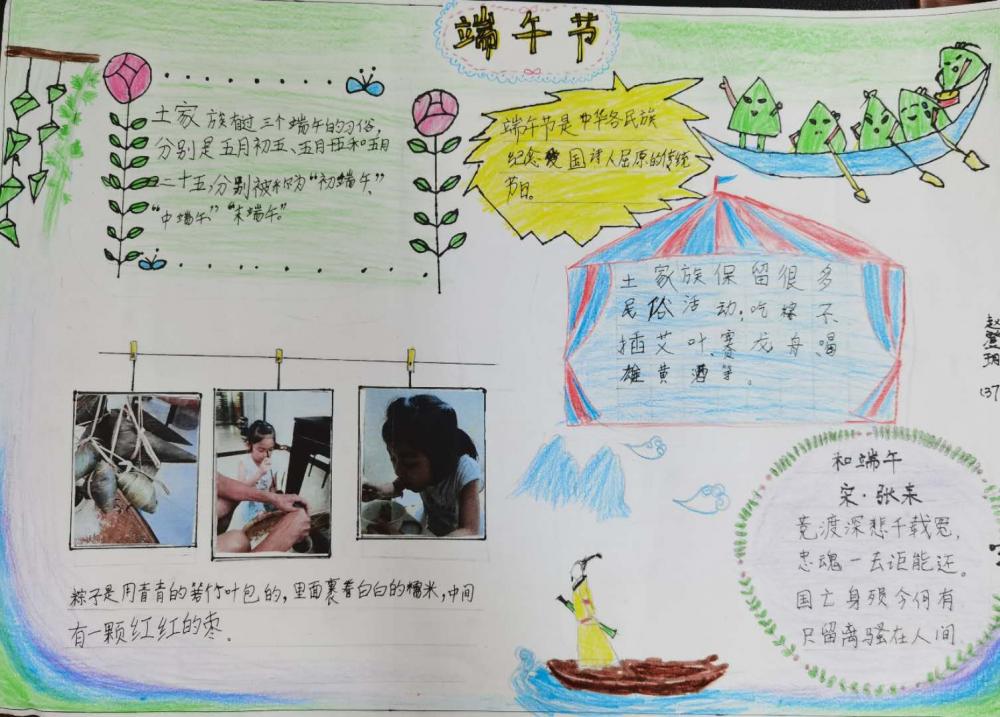 端午节
土家族有过三个端午的习俗,
分别是五月初五、五月十五和五月
二十五,分别被称为“初端午”、
“中端午”“末端午”。
端午节是中华各民族
纪念爱国诗人屈原的传统
节日。
土家族保留很多
民俗活动;吃粽子
插艾叶、赛龙舟、喝
雄黄酒等。
和端午
宋·张耒
竞渡深悲千载冤,
忠魂一去讵能还。
国亡身殒今何有
只留离骚在人间
粽子是用青青的箬竹叶包的,里面裹着白白的糯米,中间
有一颗红红的枣。